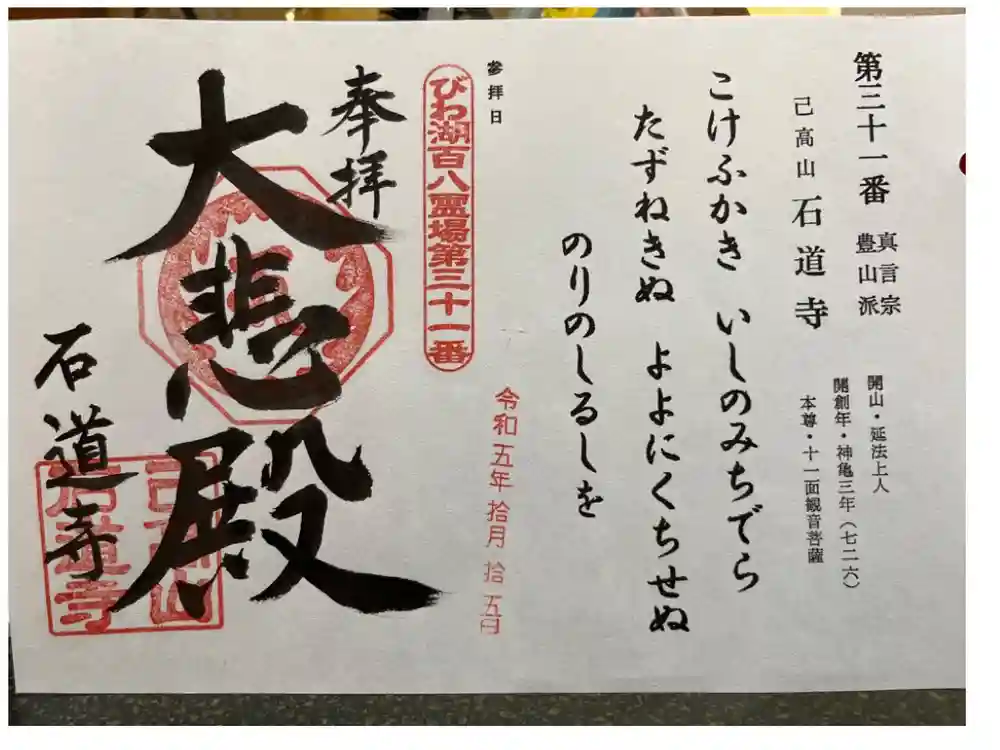 第三十一番
真言宗
豊山派
己高山 石道寺
開山・延法上人
開創年・神亀三年(七二六)
本尊・十一面観音菩薩
こけふかき いしのみちでら
たずねきぬ よよにくちせぬ
のりのしるしを
参拝日
令和五年拾月拾五日
びわ湖百八霊場第三十一番
奉拝
大悲殿
石道寺
己高山
石道寺